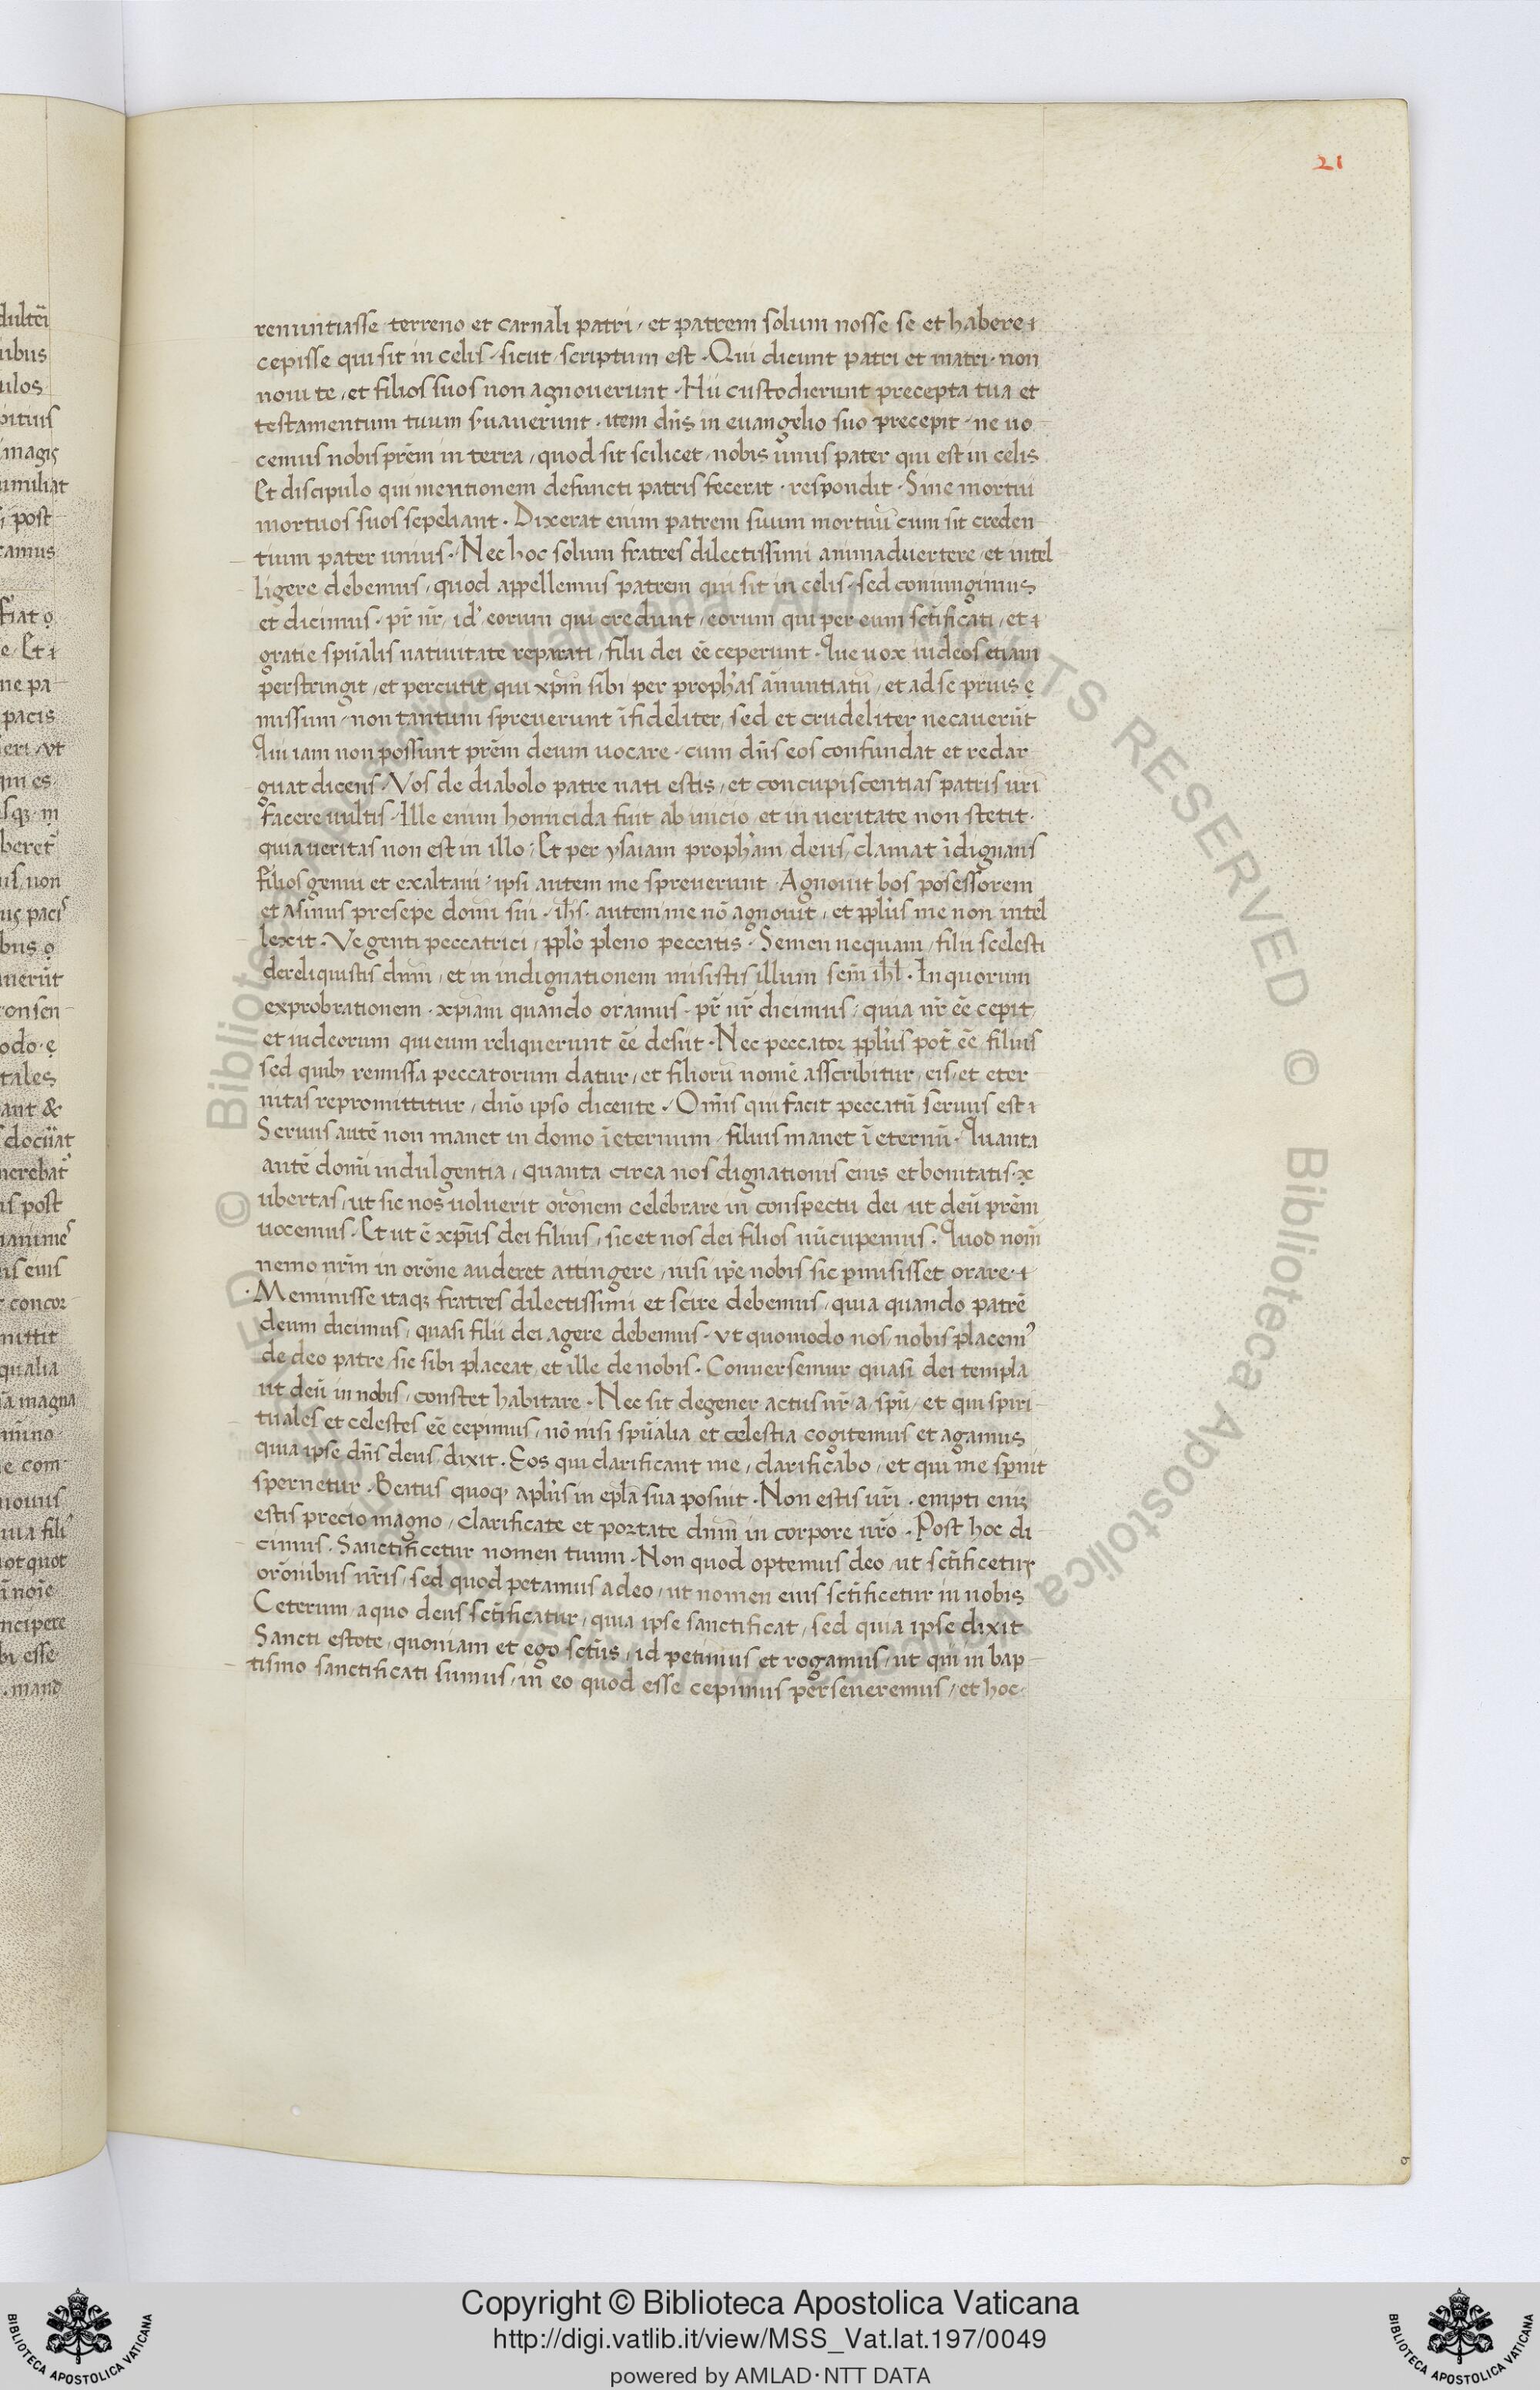 21
renuntiasse terreno et carnali patri, et patrem solum nosse se et habere
cepisse qui sit in celis. sicut scriptum est. Qui dicunt patri et matri. non
noui te, et filios suos non agnouerunt. Hii custodierunt precepta tua et
testamentum tuum s.uauerunt. item dn̄s in euangelio suo precepit. ne uo
cemus nobis prēm in terra, quod sit scilicet nobis unus pater qui est in celis
Et discipulo qui mentionem defuncti patris fecerat. respondit. Sine mortui
mortuos suos sepeliant. Dixerat enim patrem suum mortuū cum sit creden
tium pater unus. Nec hoc solum fratres dilectissimi animaduertere et intel
ligere debemus, quod appellemus patrem qui sit in celis. sed coniungimus
et dicimus. pr̄ nr̄, id' eorum qui credunt, eorum qui per eum sct̄ificati, et
gratie spūalis natiuitate reparati, filii dei eē ceperunt. Que uox iudeos etiam
perstringit, et percutit, qui xpm̄ sibi per prophas anuntiatū, et ad se prius
missum, non tantum spreuerunt īfideliter, sed et crudeliter necauerūt
Qui iam non possunt prēm deum uocare. cum dn̄s eos confundat et redar
guat dicens. Vos de diabolo patre nati estis, et concupiscentias patris uri
facere uultis. Ille enim homicida fuit ab inicio et in ueritate non stetit.
quia ueritas non est in illo. Et per ysaiam propham deus clamat īdignans
filios genui et exaltaui. ipsi autem me spreuerunt. Agnouit bos posessorem
et asinus presepe domi sui. ihs. autem me nō agnouit, et ppl's me non intel
lexit. Ve genti peccatrici, ppl'o pleno peccatis. Semen nequam, filii scelesti
dereliquistis dnm̄, et in indignationem misistis illum scm̄ ihl. In quorum
exprobrationem. xpiani quando oramus. pr̄ nr̄ dicimus, quia nr̄ eē cepit,
et iudeorum qui eum reliquerunt eē desiit. Nec peccator ppl's pot̄ eē filius
sed quib; remissa peccatorum datur, et filiorū nomē asscribitur, eis, et eter
nitas repromittitur, dn̄o ipso dicente. Om̄is qui facit peccatū seruus est
Seruus autē non manet in domo ī eternum, filius manet ī eternū. Quanta
autē domī indulgentia, quanta circa nos dignationis eius et bonitatis
ubertas, ut sic nos uoluerit orōnem celebrare in conspectu dei, ut deū prēm
uocemus. Et ut ē xpūs dei filius, sic et nos dei filios nūcupemus. Quod nom̄
nemo nrm̄ in orōne auderet attingere, nisi ipē nobis sic pmisisset orare.
Meminisse itaq; fratres dilectissimi et scire debemus, quia quando patrē
deum dicimus, quasi filii dei agere debemus. ut quomodo nos nobis placem'
de deo patre, sic sibi placeat et ille de nobis. Conuersemur quasi dei templa
ut deū in nobis, constet habitare. Nec sit degener actus nr̄ a spū, et qui spiri
tuales et celestes eē cepimus, nō nisi spūalia et celestia cogitemus et agamus
quia ipse dn̄s deus dixit. Eos qui clarificant me, clarificabo, et qui me spnit
spernetur. Beatus quoq; apl's in epl̄a sua posuit. Non estis uri. empti eni;
estis precio magno, clarificate et portate dnm̄ in corpore uro. Post hoc di
cimus. Sanctificetur nomen tuum. Non quod optemus deo, ut sct̄ificetur
orōnibus nr̄is, sed quod petamus a deo, ut nomen eius sct̄ificetur in nobis
Ceterum a quo deus sct̄ificatur, quia ipse sanctificat, sed quia ipse dixit
Sancti estote, quoniam et ego sct̄us, id petimus et rogamus, ut qui in bap
tismo sanctificati sumus, in eo quod esse cepimus perseueremus, et hoc
Copyright © Biblioteca Apostolica Vaticana
http://digi.vatlib.it/view/MSS_Vat.lat.197/0049
powered by AMLAD·NTT DATA
BIBLIOTECA APOSTOLICA VATICANA
BIBLIOTECA APOSTOLICA VATICANA